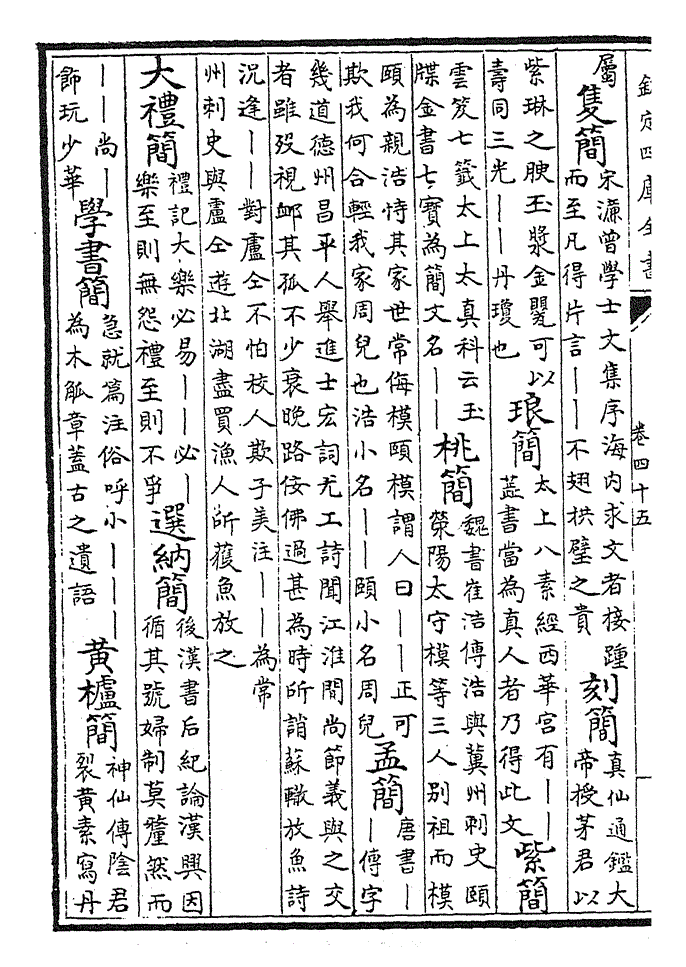 欽定四庫全書
卷四十五
屬
隻簡
宋濂曾學士文集序海内求文者接踵
而至凡得片言——不翅拱璧之貴
刻簡
真仙通鑑大
帝授茅君以
紫琳之腴玉漿金罌可以
壽同三光——丹瓊也
琅簡
太上八素經西華宫有——
蓋書當為真人者乃得此文
紫簡
雲笈七籤太上太真科云玉
牒金書七寶為簡文名——
桃簡
魏書崔浩傳浩與冀州刺史頤
滎陽太守模等三人别祖而模
頤為親浩恃其家世常侮模頤模謂人曰——正可
欺我何合輕我家周兒也浩小名——頤小名周兒
孟簡
唐書—
—傳字
幾道德州昌平人舉進士宏詞尤工詩聞江淮間尚節義與之交
者雖歿視䘏其孤不少衰晚路佞佛過甚為時所誚蘇轍放魚詩
况逢——對盧仝不怕校人欺子美注——為常
州刺史與盧仝遊北湖盡買漁人所獲魚放之
大禮簡
禮記大樂必易——必—
樂至則無怨禮至則不爭
選納簡
後漢書后紀論漢興因
循其號婦制莫釐然而
——尚—
飾玩少華
學書簡
急就篇注俗呼小———
為木觚章蓋古之遺語
黄櫨簡
神仙傳陰君
裂黄素寫丹